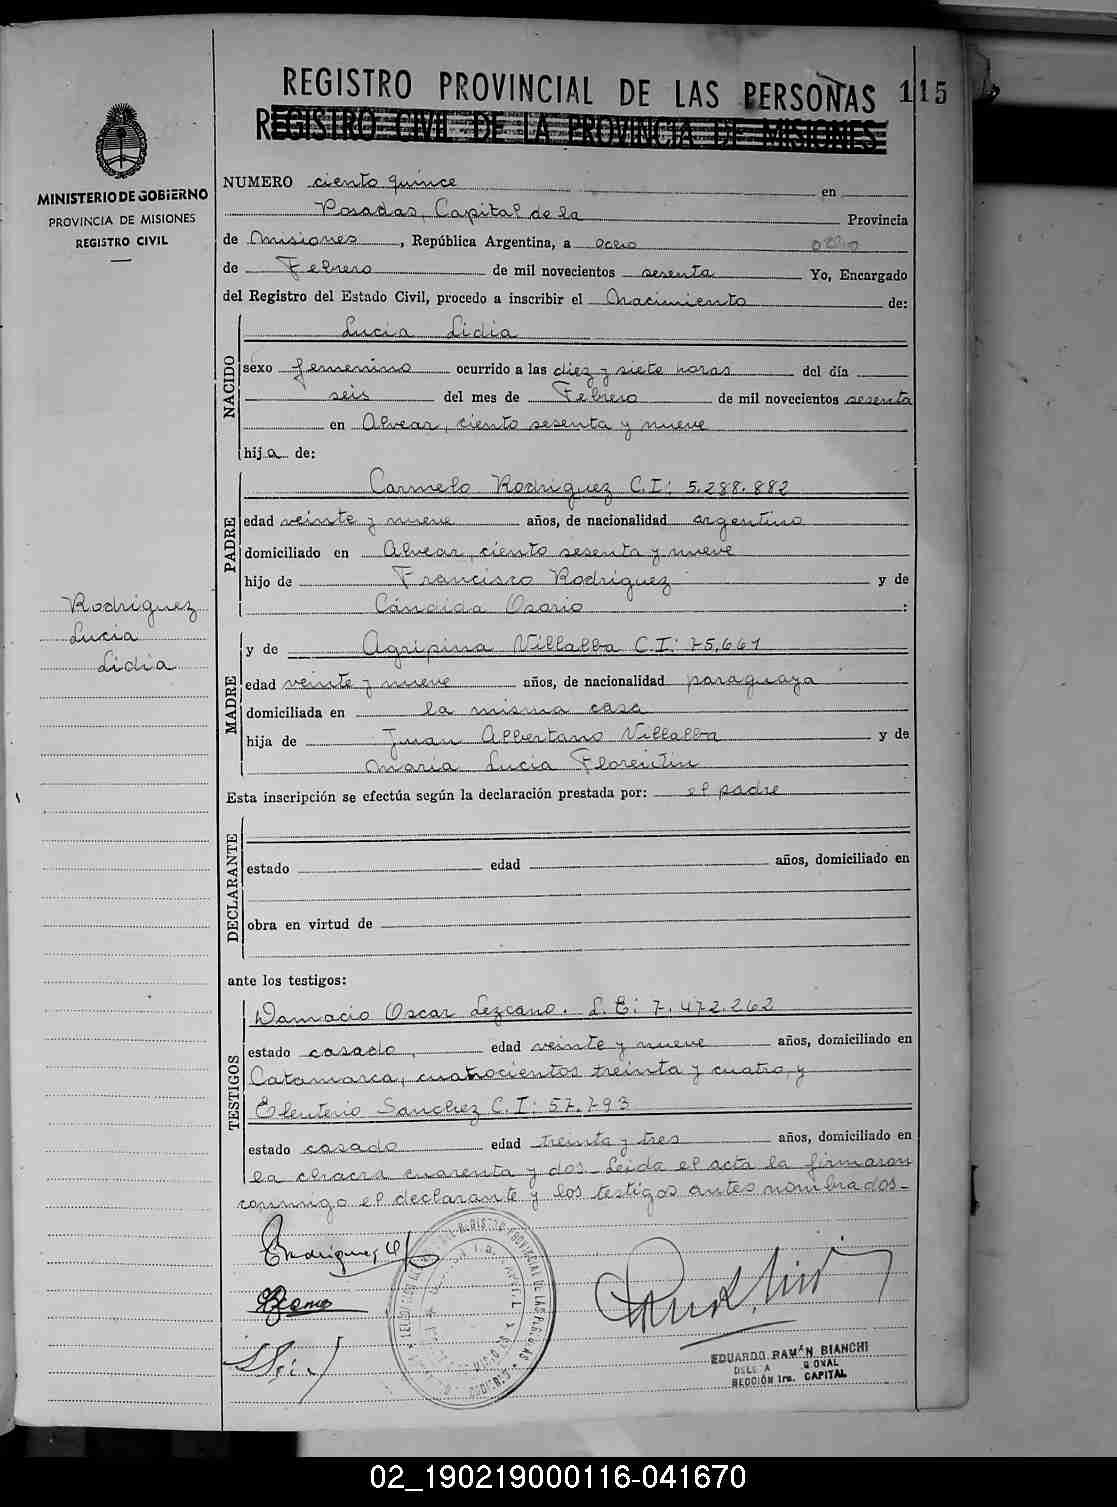 REGISTRO PROVINCIAL DE LAS PERSONAS 115
REGISTRO CIVIL DE LA PROVINCIA DE MISIONES
MINISTERIO DE GOBIERNO
PROVINCIA DE MISIONES
REGISTRO CIVIL
NUMERO ciento quince en
Posadas, Capital de la Provincia
de Misiones, República Argentina, a ocho ocho
de Febrero de mil novecientos sesenta Yo, Encargado
del Registro del Estado Civil, procedo a inscribir el Nacimiento de:
NACIDO
Lucia Lidia
sexo femenino ocurrido a las diez y siete horas del día
seis del mes de Febrero de mil novecientos sesenta
en Alvear, ciento sesenta y nueve
hija de:
PADRE
Carmelo Rodriguez C.I: 5.288.882
edad veinte y nueve años, de nacionalidad argentino
domiciliado en Alvear, ciento sesenta y nueve
hijo de Francisco Rodriguez y de
Cándida Osorio :
Rodriguez
Lucia
Lidia
MADRE
y de Agripina Villalba C.I: 75.661
edad veinte y nueve años, de nacionalidad paraguaya
domiciliada en la misma casa
hija de Juan Albertano Villalba y de
Maria Lucia Florentin
Esta inscripción se efectúa según la declaración prestada por: el padre
DECLARANTE
estado edad años, domiciliado en
obra en virtud de
ante los testigos:
TESTIGOS
Damacio Oscar Lezcano. L.E: 7.472.262
estado casado, edad veinte y nueve años, domiciliado en
Catamarca, cuatrocientos treinta y cuatro, y
Eleuterio Sanchez C.I: 57.793
estado casado edad treinta y tres años, domiciliado en
la chacra cuarenta y dos. Leida el acta la firmaron
conmigo el declarante y los testigos antes nombrados.-
EDUARDO RAMON BIANCHI
SECCIÓN 1ra. CAPITAL
02_190219000116-041670